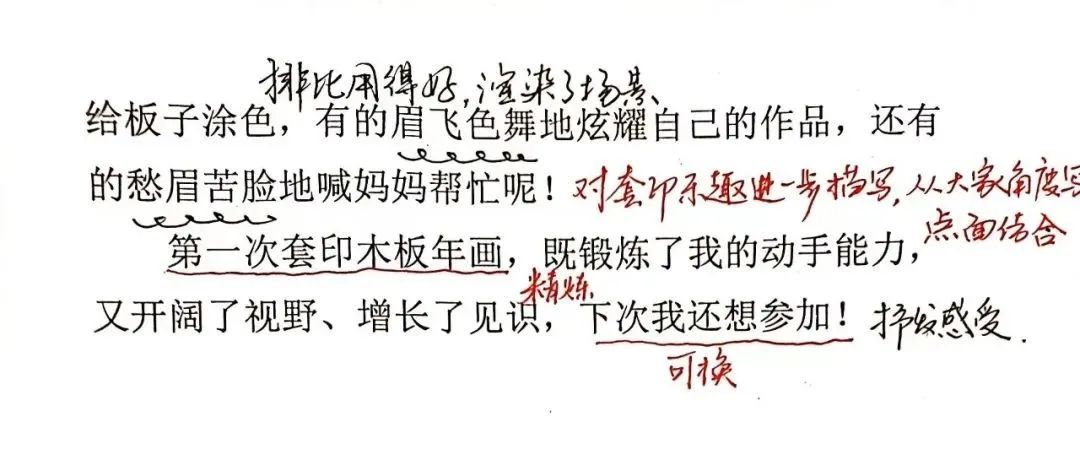 排比用得好,渲染了场景、
给板子涂色，有的眉飞色舞地炫耀自己的作品，还有
的愁眉苦脸地喊妈妈帮忙呢！对套印乐趣进一步描写,从大家角度写
点面结合
第一次套印木板年画，既锻炼了我的动手能力，
精炼
又开阔了视野、增长了见识，下次我还想参加！抒发感受.
可换